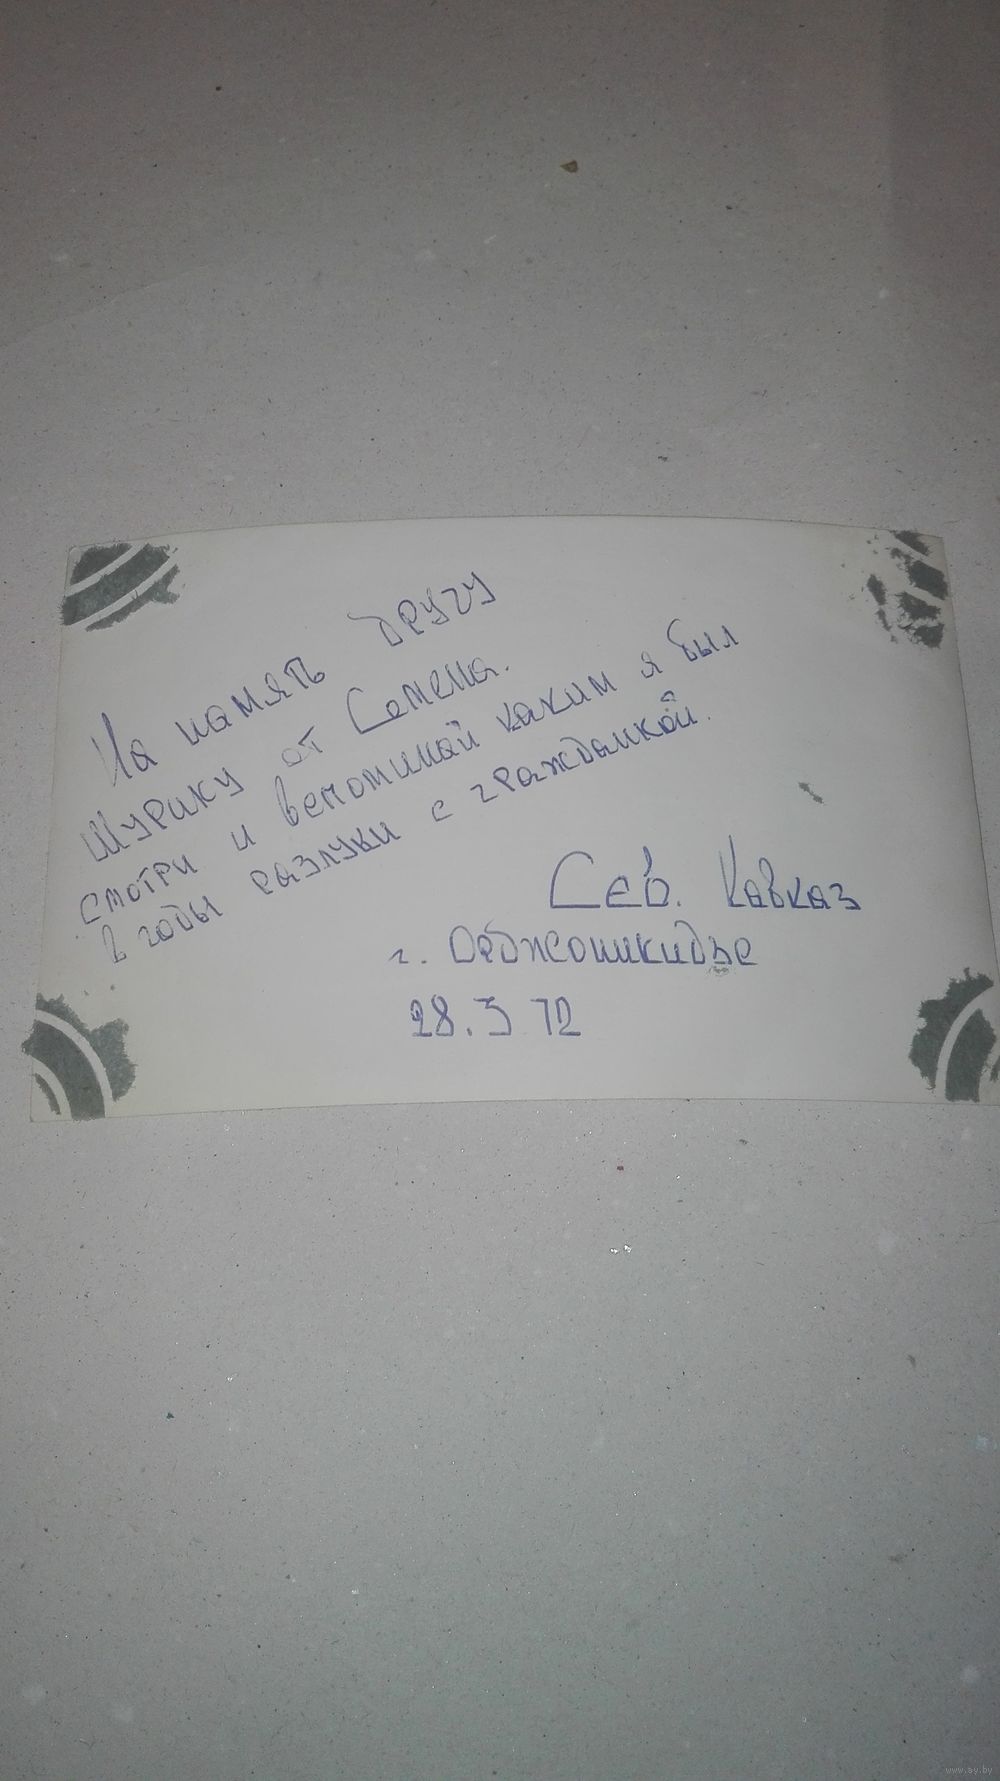 На память другу
Шурику от Семена.
смотри и вспоминай каким я был
в годы разлуки с гражданкой.
Сев. Кавказ
г. Орджоникидзе
28.3 72
www.ay.by